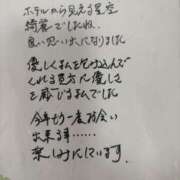 ホテルから見える星空
綺麗でしたね。
良い思い出になりました
優しく私を包み込んで
くれる貴方に優しさ
を感じるました
今年もう一度お会い
出来る事……
楽しみにしています